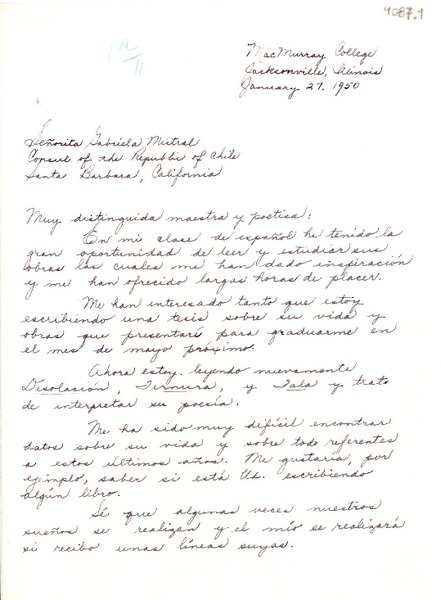 4087.1
MacMurray College
Jacksonville, Illinois
January 27, 1950
Señorita Gabriela Mistral
Consul of the Republic of Chile
Santa Barbara, California
Muy distinguida maestra y poetisa:
En mi clase de español he tenido la
gran oportunidad de leer y estudiar sus
obras las cuales me han dado inspiración
y me han ofrecido largas horas de placer.
Me han interesado tanto que estoy
escribiendo una tesis sobre su vida y
obras que presentaré para graduarme en
el mes de mayo próximo.
Ahora estoy leyendo nuevamente
Desolación, Ternura, y Tala y trato
de interpretar su poesía.
Me ha sido muy difícil encontrar
datos sobre su vida y sobre todo referentes
a estos últimos años. Me gustaría, por
ejemplo, saber si está Ud. escribiendo
algún libro.
Sé que algunas veces nuestros
sueños se realizan y el mío se realizará
si recibo unas líneas suyas.